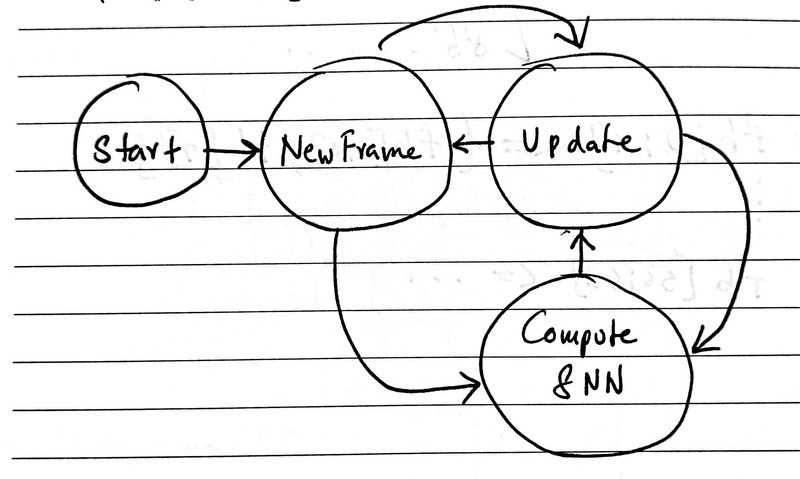 Start
New Frame
Update
Compute
& NN